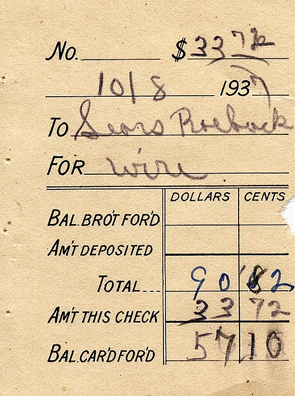 No. $33 72
10/8 1937
To Sears Roebuck
FOR wire
DOLLARS CENTS
BAL. BRO'T FOR'D
AM'T DEPOSITED
TOTAL 90 82
AM'T THIS CHECK 33 72
BAL. CAR'D FOR'D 57 10